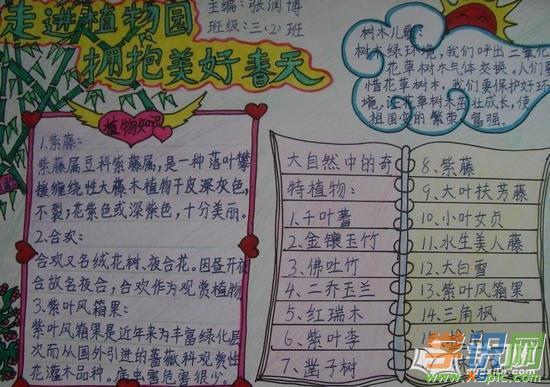 走进植物园
拥抱美好春天
主编:张润博
班级:三〈2〉班
植物知识
1.紫藤:
紫藤属豆科紫藤属,是一种落叶攀
援缠绕性大藤木植物干皮深灰色,
不裂;花紫色或深紫色,十分美丽。
2.合欢:
合欢又名绒花树、夜合花。因昼开夜
合故名夜合,合欢作为观赏植物
3.紫叶风箱果:
紫叶风箱果是近年来为丰富绿化层
次而从国外引进的蔷薇科观赏性
花灌木品种。病虫害危害很少。
树木儿歌:
树木绿环境,我们呼出二氧化
花草树木气体交换。人们要
惜花草树木。我们要保护好环
境,让花草树木茁壮成长,使
祖国变的繁荣、富强。
大自然中的奇
特植物:
1.千叶蓍
2.金镶玉竹
3.佛吐竹
4.二乔玉兰
5.红瑞木
6.紫叶李
7.凿子树
8.紫藤
9.大叶扶芳藤
10.小叶女贞
11.水生美人藤
12.大白雪
13.紫叶风箱果
14.三角枫
15.
学识网
x5pic.com